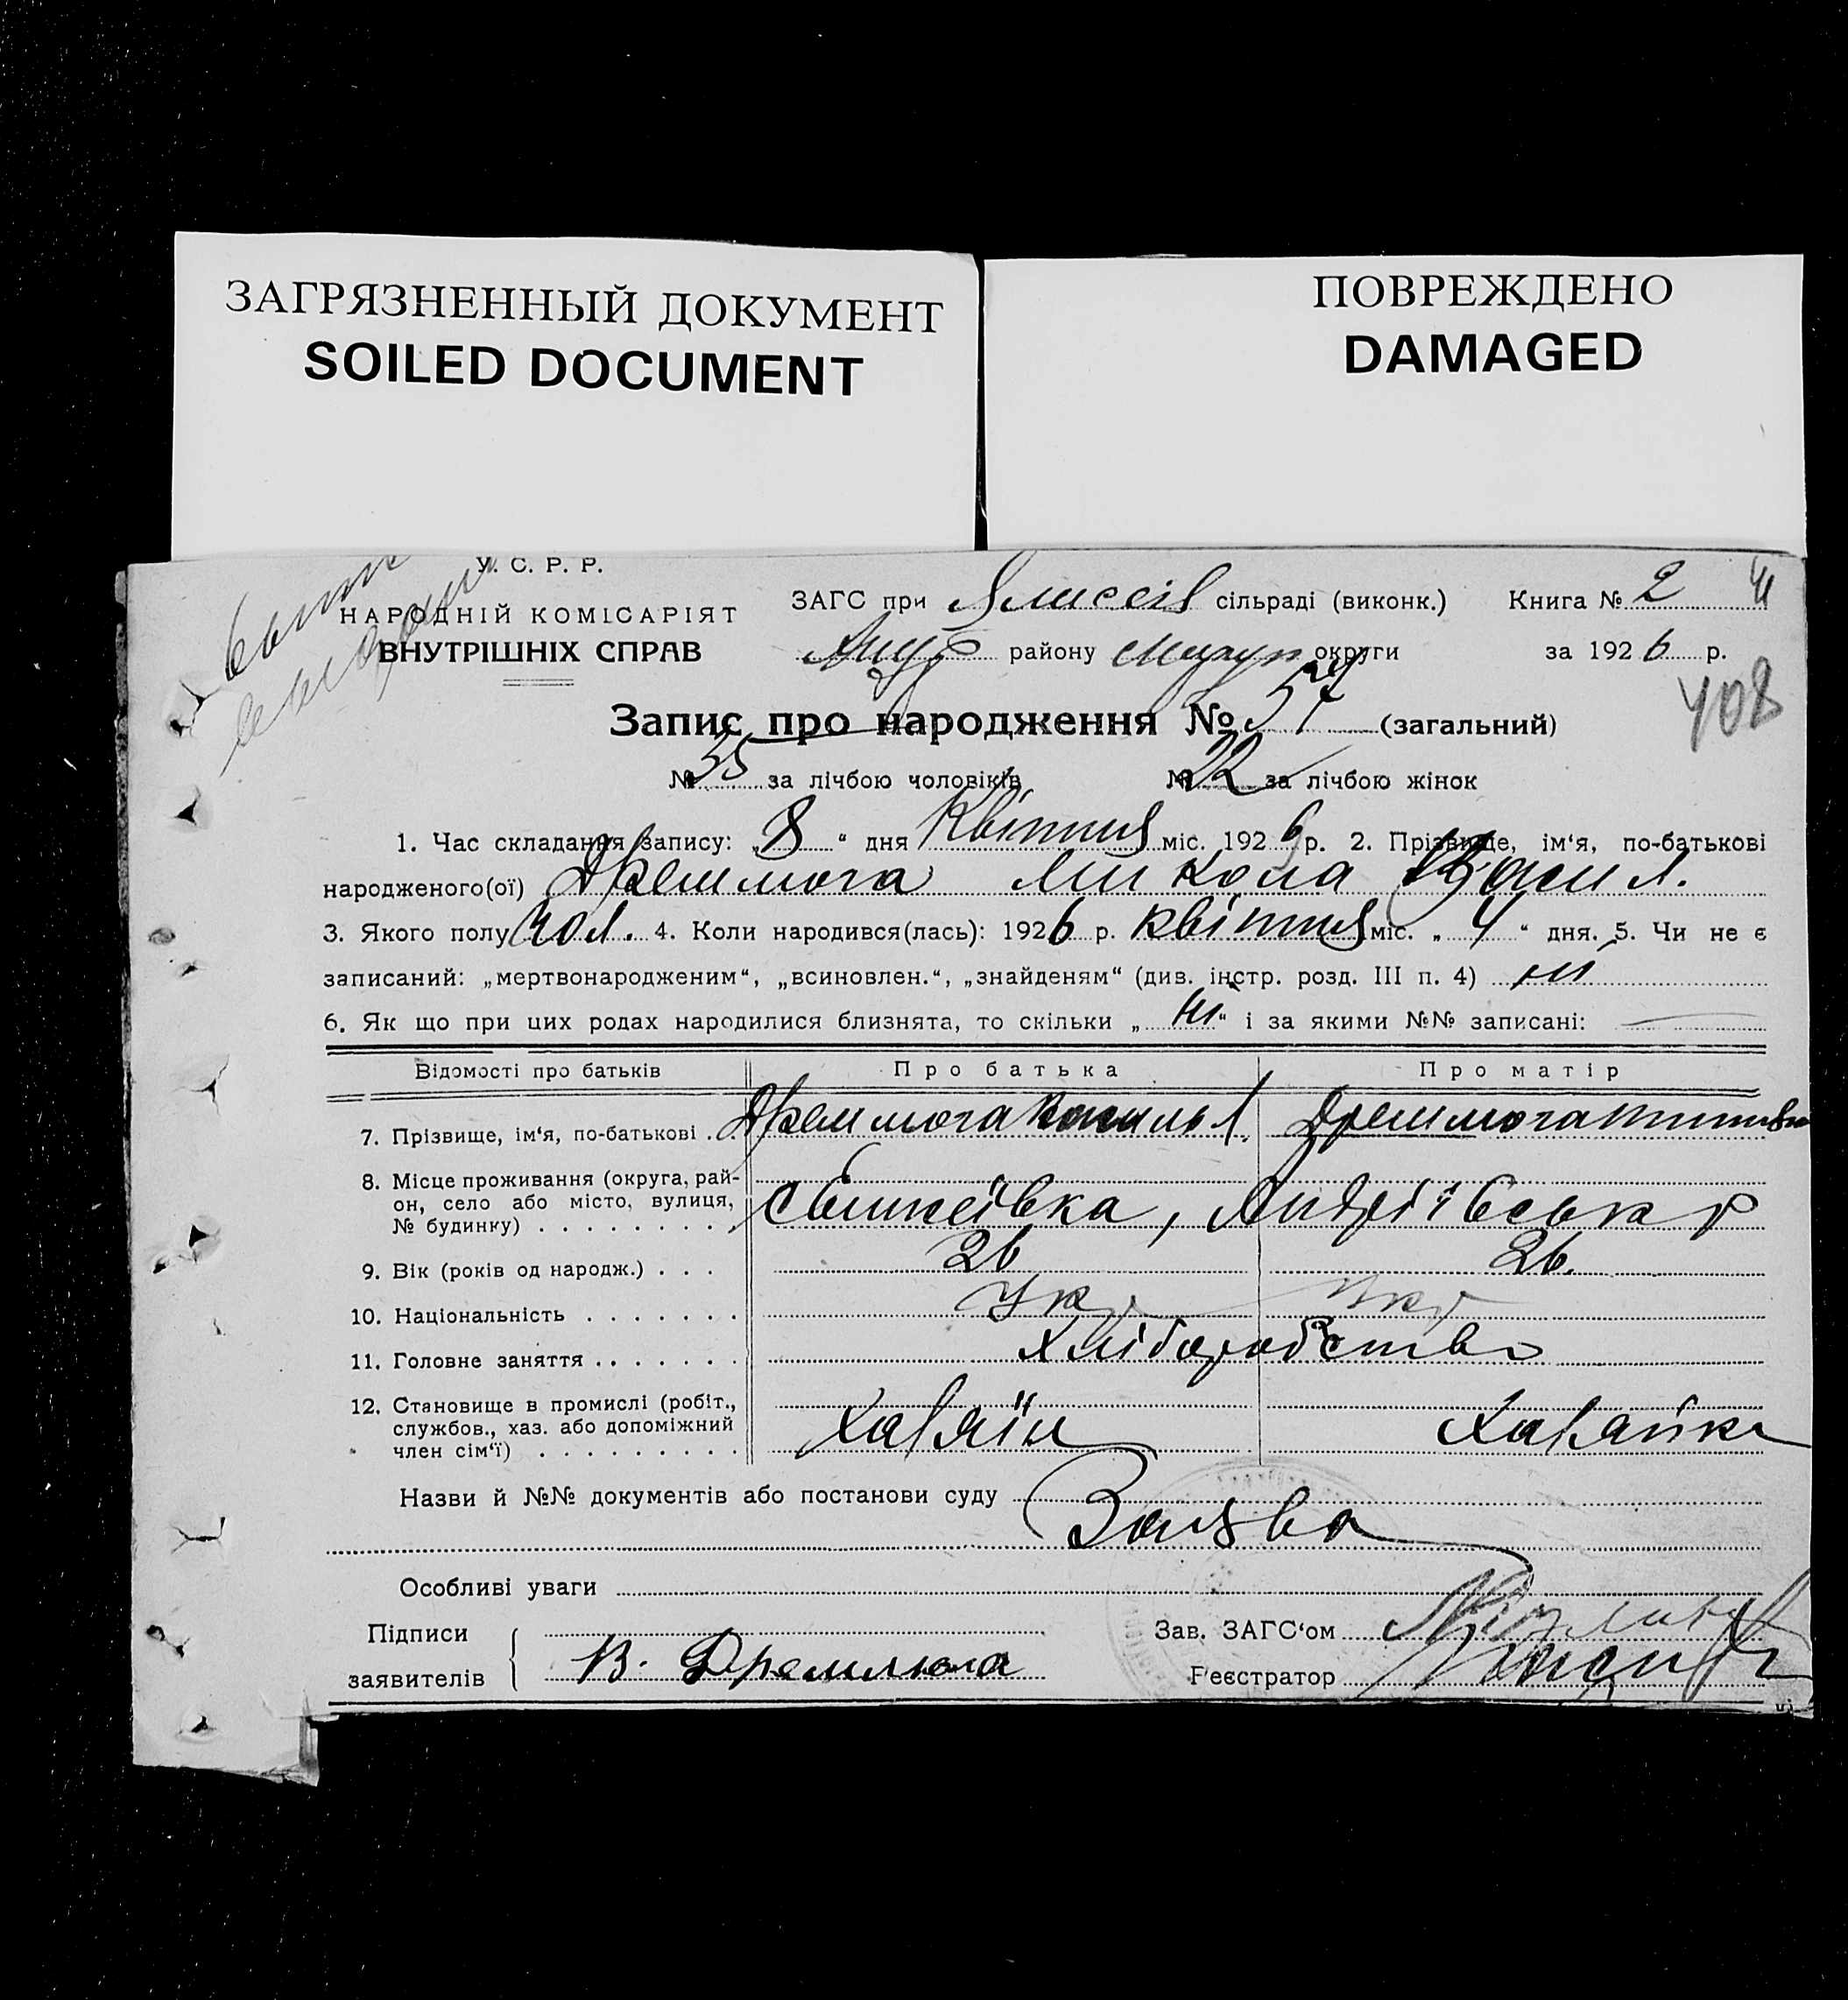 ЗАГРЯЗНЕННЫЙ ДОКУМЕНТ
SOILED DOCUMENT
ПОВРЕЖДЕНО
DAMAGED
У. С. Р. Р.
НАРОДНІЙ КОМІСАРІЯТ
ВНУТРІШНІХ СПРАВ
ЗАГС при сільраді (виконк.) Книга № 2
району округи за 1926 р.
408
Запис про народження № 57 (загальний)
№ 35 за лічбою чоловіків № 22 за лічбою жінок
1. Час складання запису: „8“ дня Квітня міс. 1926 р. 2. Прізвище, ім‘я, по-батькові
народженого(ої) Дремлюга Микола Васил.
3. Якого полу чол. 4. Коли народився(лась): 1926 р. квітня міс. „4“ дня. 5. Чи не є
записаний: „мертвонародженим“, „всиновлен.“, „знайденям“ (див. інстр. розд. III п. 4) ні
6. Як що при цих родах народилися близнята, то скільки „ні“ і за якими №№ записані: —
Відомості про батьків Про батька Про матір
7. Прізвище, ім‘я, по-батькові . . Дремлюга Дремлюга
8. Місце проживання (округа, рай-
он, село або місто, вулиця,
№ будинку) . . . . . . . . Андріївськ р
9. Вік (років од народж.) . . . 26 26.
10. Національність . . . . . . . Укр Укр
11. Головне заняття . . . . . . . Хліборобство
12. Становище в промислі (робіт.,
службов., хаз. або допоміжний
член сім‘ї) . . . . . . . . . Хазяїн Хазяйка
Назви й №№ документів або постанови суду Заява
Особливі уваги
Підписи
заявителів В. Дремлюга
Зав. ЗАГС‘ом
Реєстратор